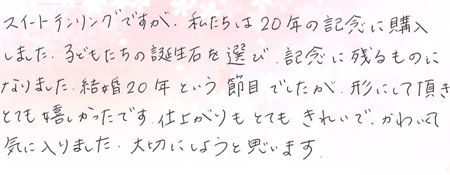 スイートテンリングですが、私たちは20年の記念に購入
しました。子どもたちの誕生石を選び、記念に残るものに
なりました。結婚20年という節目でしたが、形にして頂き
とても嬉しかったです。仕上がりもとてもきれいで、かわいくて
気に入りました。大切にしようと思います。